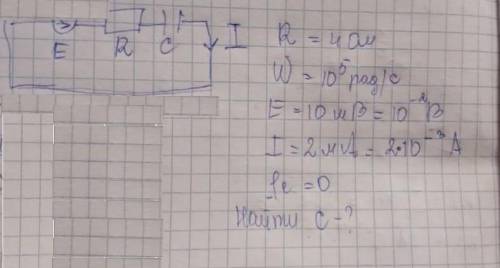 E R C I
R = 4 Ом
W = 10⁵ рад/с
E = 10 мВ = 10⁻²В
I = 2 мА = 2·10⁻³ А
= 0
Найти C - ?